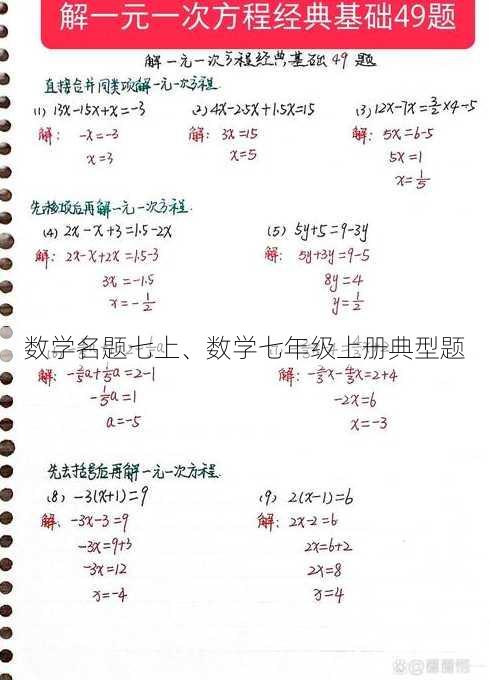 解一元一次方程经典基础49题
解一元一次方程经典基础49题
直接合并同类项解一元一次方程
(1) 13x-15x+x=-3
(2) 4x-2.5x+1.5x=15
(3) 12x-7x=3/2×4-5
解: -x=-3
解: 3x=15
解: 5x=6-5
x=3
x=5
5x=1
x=1/5
先移项后再解一元一次方程.
(4) 2x-x+3=1.5-2x
(5) 5y+5=9-3y
解: 2x-x+2x=1.5-3
解: 5y+3y=9-5
3x=-1.5
8y=4
x=-1/2
y=1/2
数学名题七上、数学七年级上册典型题
解: -2/5a+1/5a=2-1
解: -2/3x-4/3x=2+4
-1/5a=1
-2x=6
a=-5
x=-3
先去括号后再解一元一次方程.
(8) -3(x+1)=9
(9) 2(x-1)=6
解: -3x-3=9
解: 2x-2=6
-3x=9+3
2x=6+2
-3x=12
2x=8
x=-4
x=4